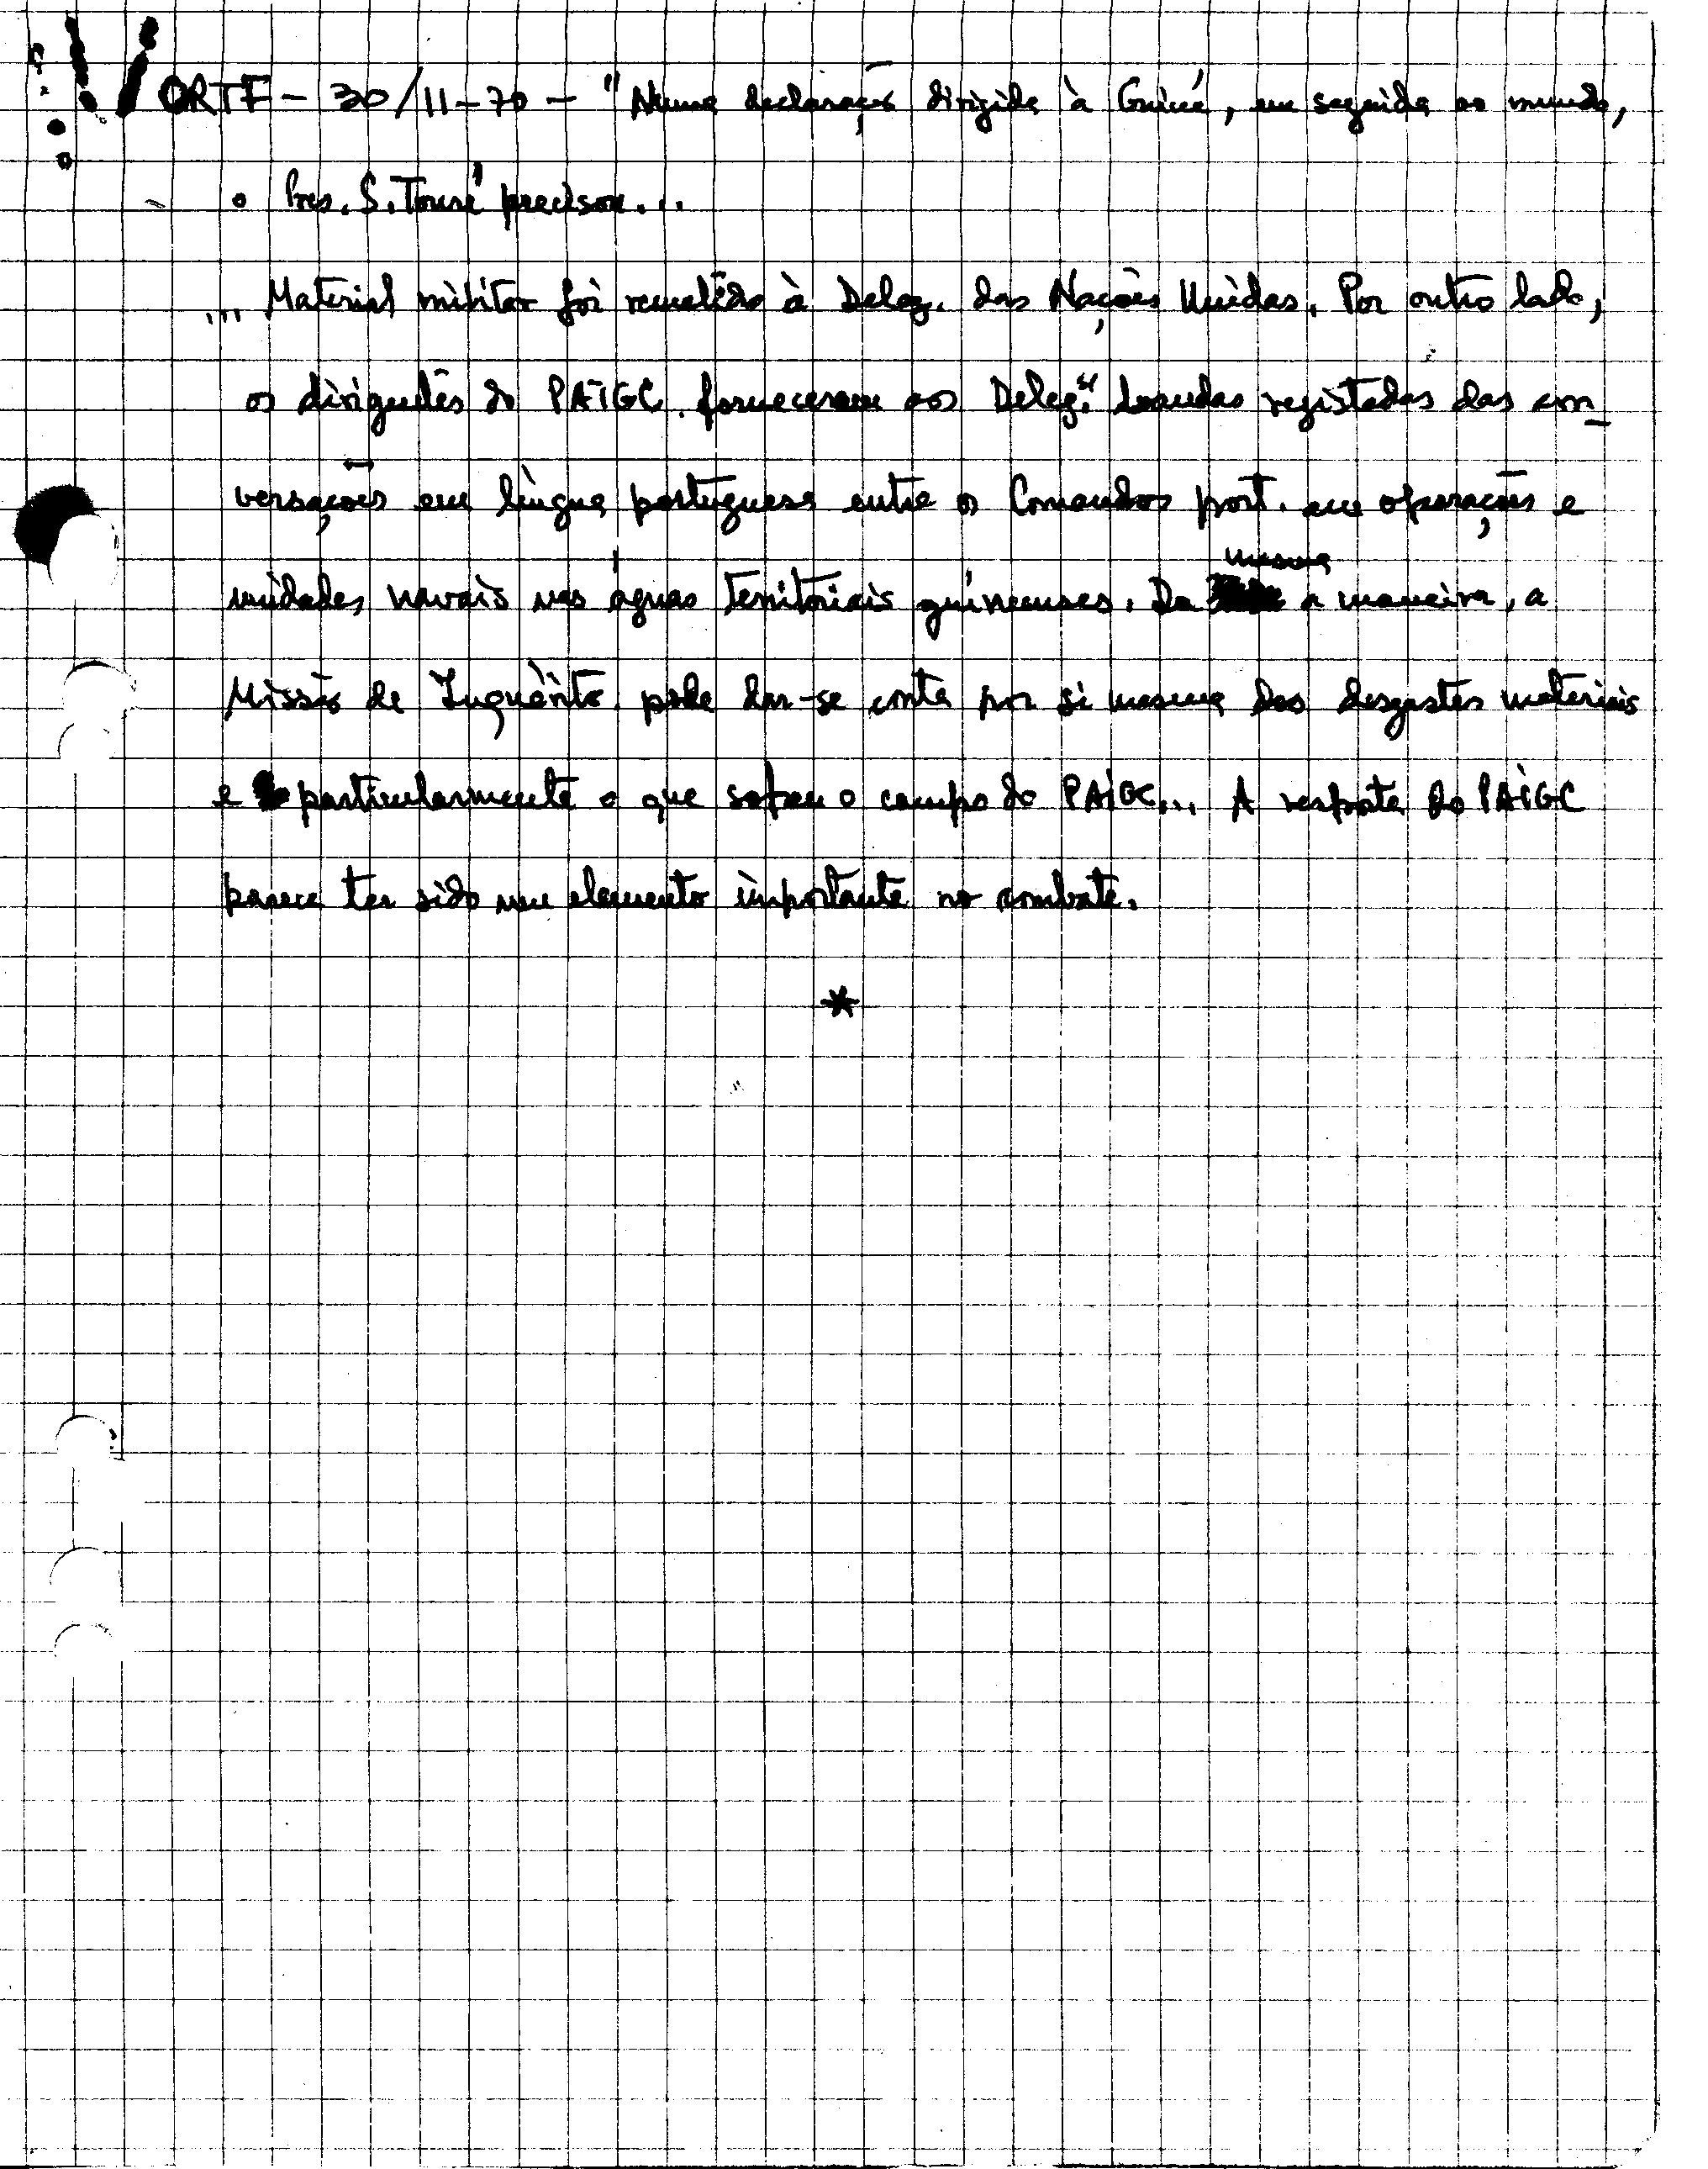 ORTF - 30/11-70 - "Numa declaração dirigida à Guiné, em seguida ao mundo,
o Pres. S. Touré precisou...
... Material militar foi remetido à Deleg. das Nações Unidas. Por outro lado,
os dirigentes do PAIGC forneceram aos Deleg. bandas registadas das con-
versações em língua portuguesa entre os Comandos port. em operações e
unidades navais nas águas territoriais guineenses. Da mesma maneira, a
Missão de Inquérito pode dar-se conta por si mesma dos desgastes materiais
e particularmente o que sofreu o campo do PAIGC... A resposta do PAIGC
parece ter sido um elemento importante no combate.
*